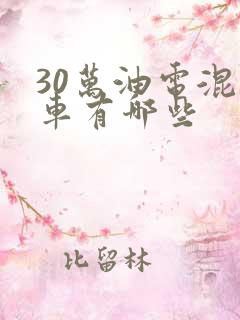 30萬油電混
車有哪些
比留林